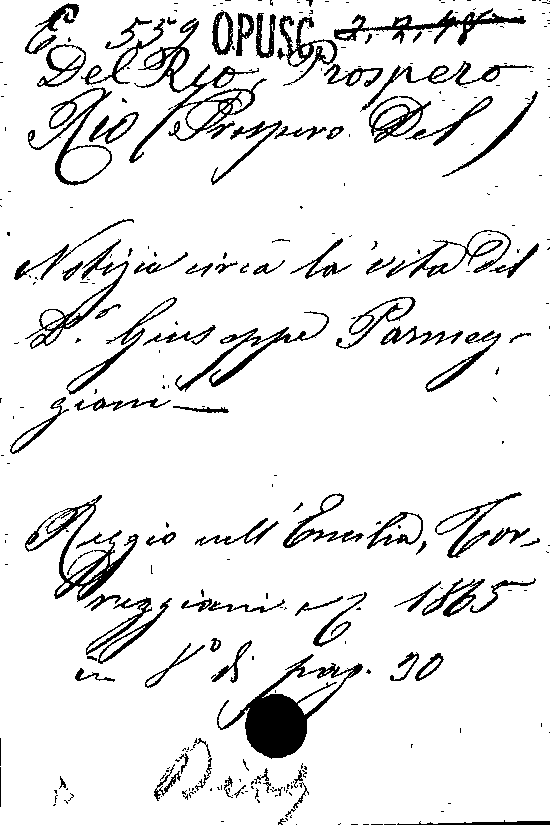 E. 559 OPUSC. 2. 2. 48
Del Rio, Prospero
Rio (Prospero Del)
Notizia circa la vita del
D.r Giuseppe Parmeg-
giani —
Reggio nell' Emilia, Tor-
reggiani e C. 1865
in 8º di pag. 30